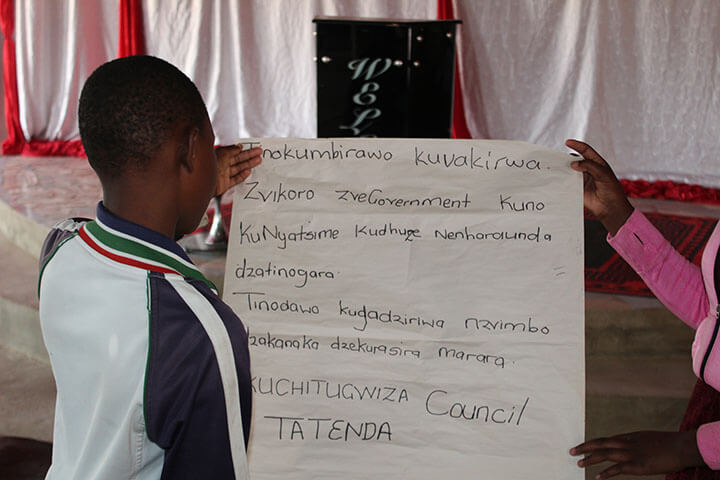 WEL
Tinokumbirawo kuvakirwa.
Zvikoro zveGovernment kuno
KuNyatsime Kudhuze Nenharaunda
dzatinogara.
Tinodawo kugadziriwa nzvimbo
dzakanaka dzekurasira marara.
KUCHITUGWIZA Council
TATENDA